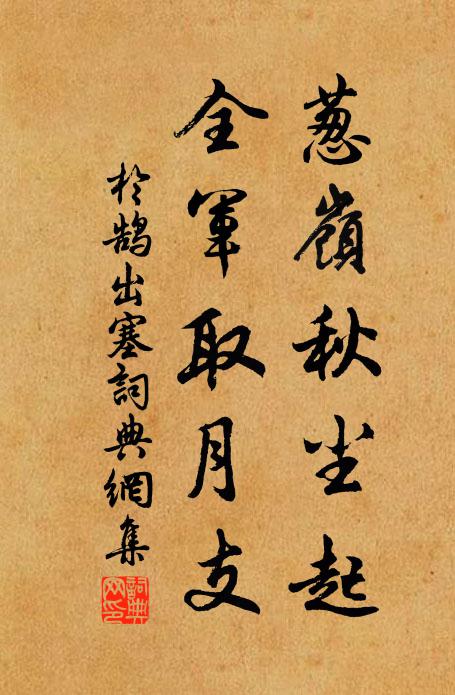 葱嶺秋尘起
全軍取月支
於鵠出塞詞典網集
詞典網印